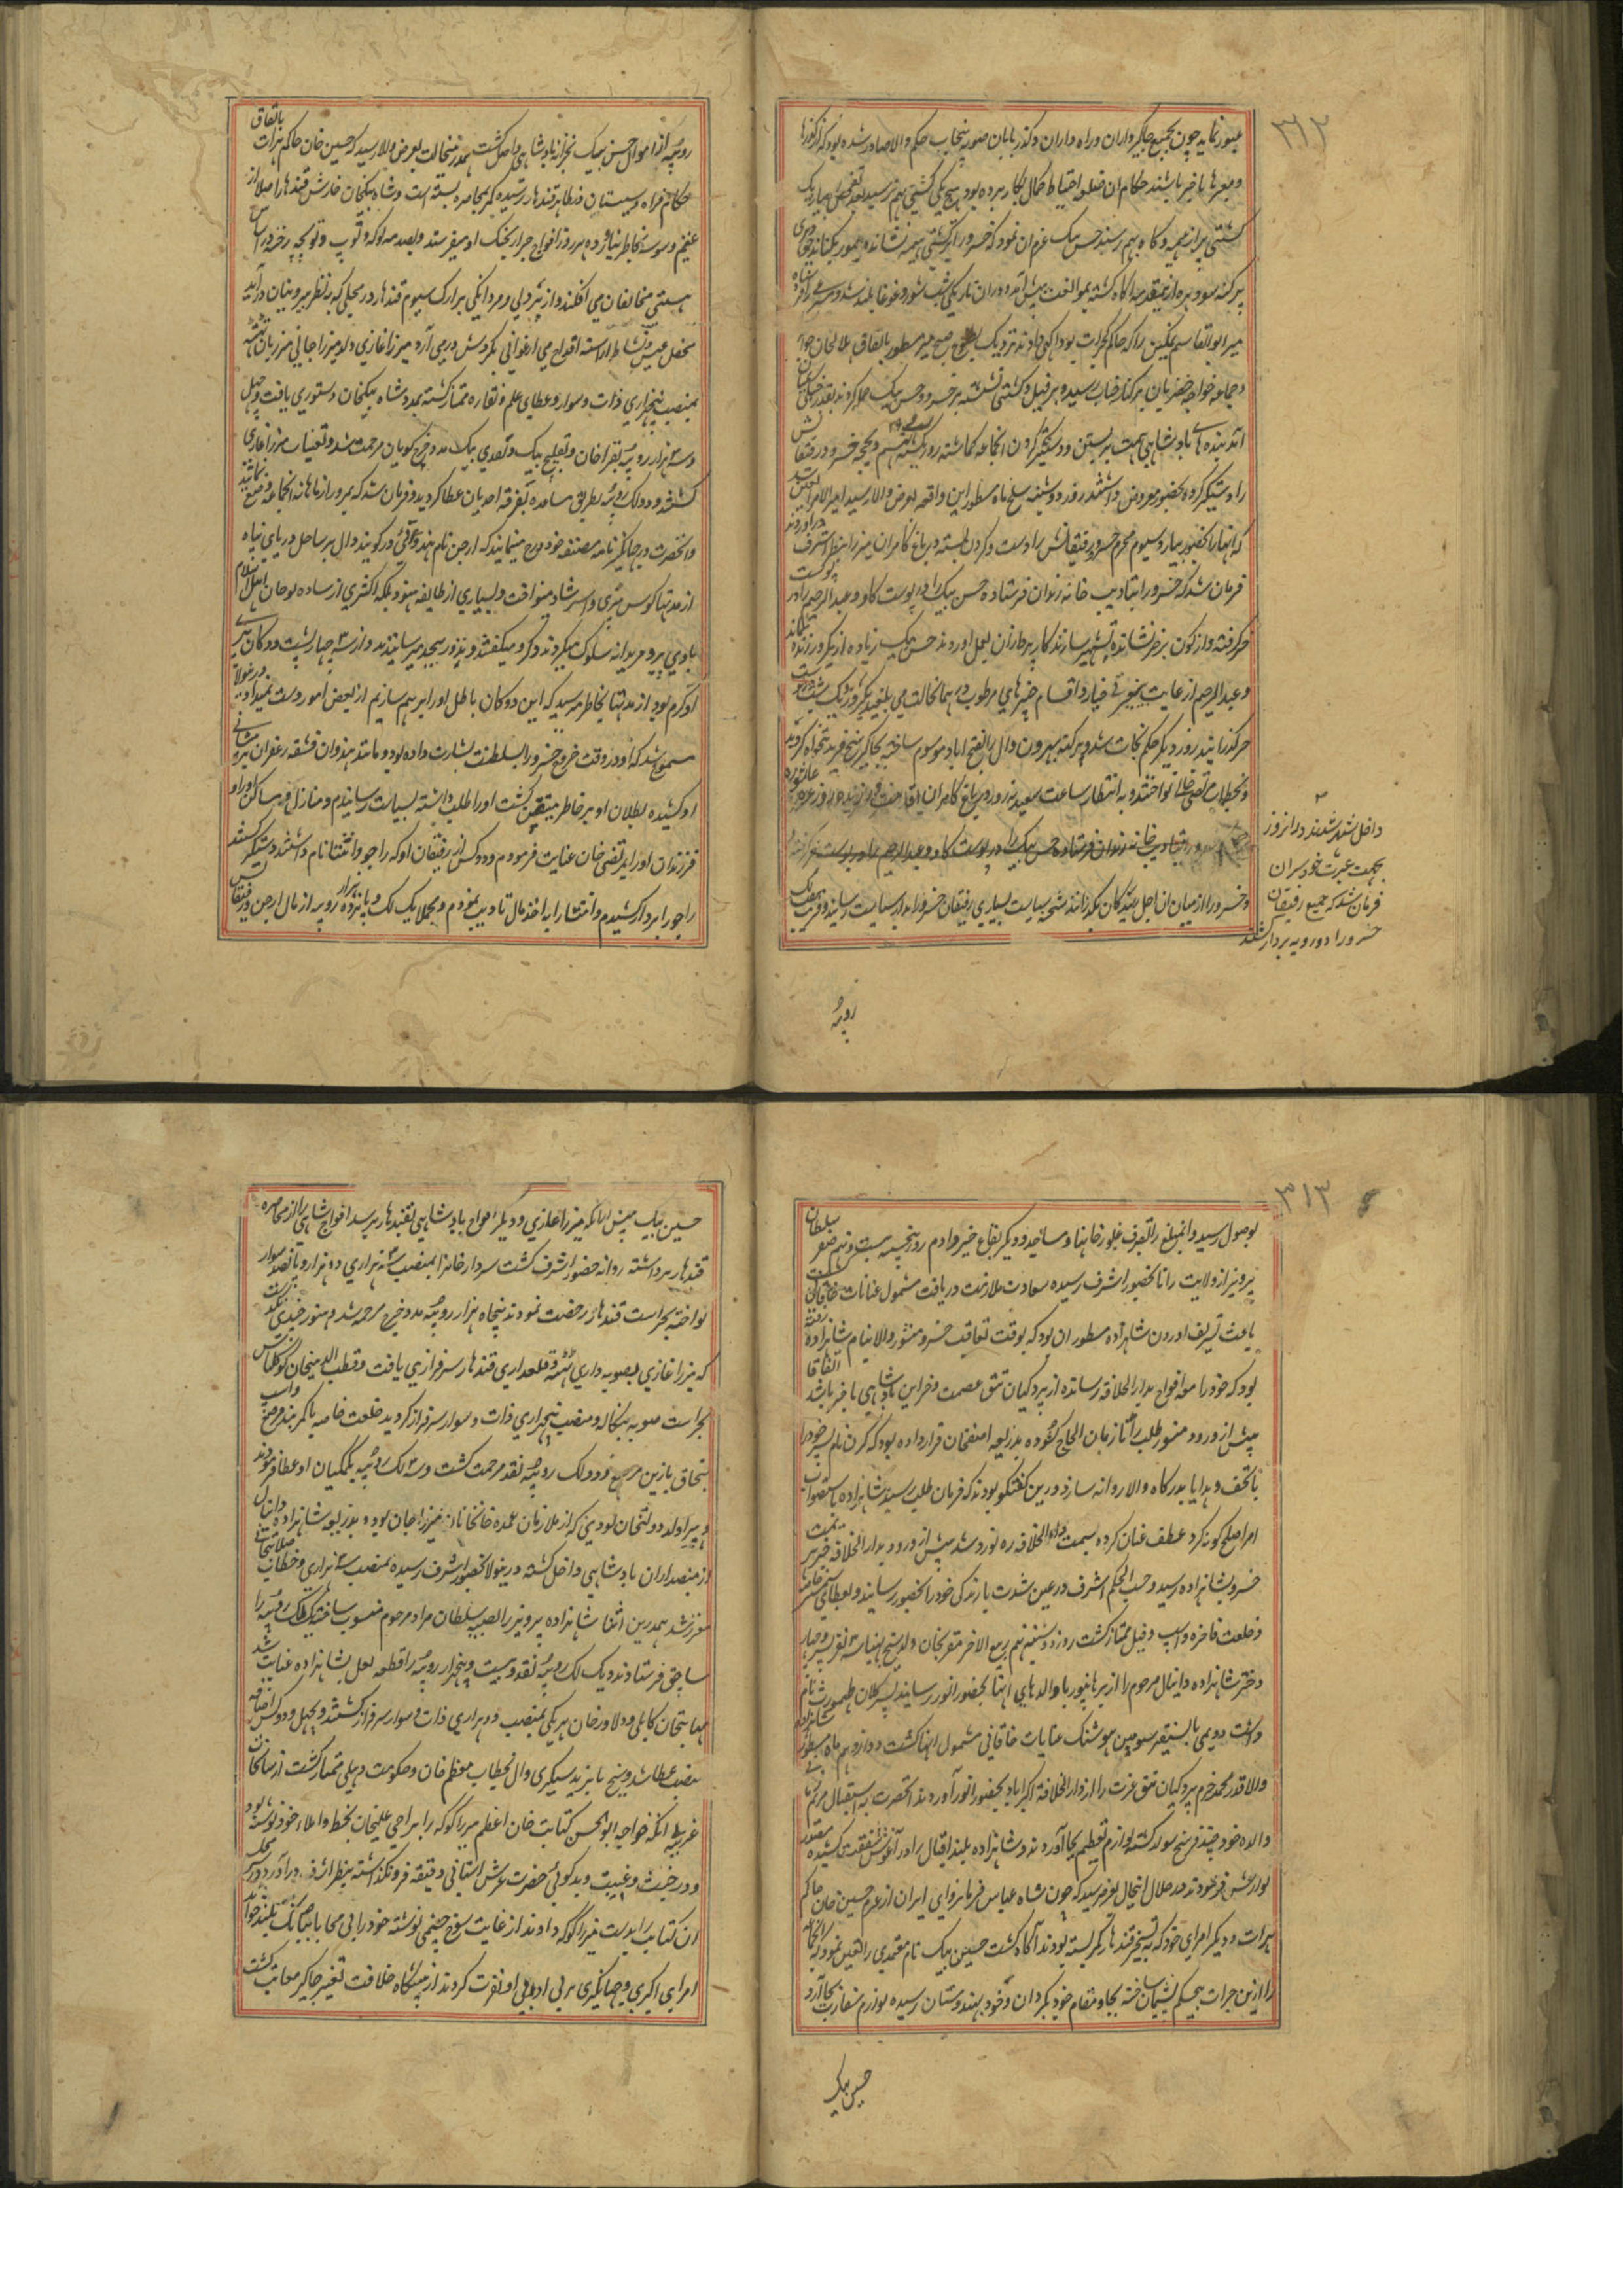 ۳۱۲
عبور نماید چون بجمیع جاگیرداران و راه داران و کذر بانان صوبه پنجاب حکم والا صادر شده بود که از کذرها
و معبرها باخبر باشند حکام ان ضلع احتیاط کمال بکار برده بود هیچ یکی کشتی بهم نرسید بعد تفحص بسیار یک
کشتی پر از هیمه و کاه بهم رسید حسن بیک عزم ان نمود که خسرو را بر کشتی هیمه نشانده
میر ابوالقاسم نمکین را که حاکم کجرات بود اکهی دادند نزدیک بطلوع صبح میر مسطور باتفاق هلالخان
و جماعه خواجه خضریان بر کنار چناب رسیده بر فیل و کشتی نشسته بر خسرو و حسن بیک حمله کردند
را دستکیر کرده بحضور معروض داشتند روز دوشنبه سلخ ماه مسطور این واقعه بعرض والا رسید امیر الامرا تعین شد
که انها را بحضور بیارد سیوم محرم خسرو و رفیقانش را دست و کردن بسته در باغ کامران میرزا بنظر اشرف در اوردند
فرمان شد که خسرو را بتادیب خانه زندان فرستاده حسن بیک را در پوست کاو و عبد الرحیم را در پوست
خر کرفته واژکون بر خر نشانده تشهیر سازند کار پردازان بعمل اوردند حسن بیک زیاده از یکروز زنده نماند
و عبد الرحیم از غایت بیغیرتی خیار و اقسام چیزهای مرطوب در همانحالت می بلعید یکروز و یک شب در پوست
خر کذرانید روز دیکر حکم نجات شد و پرکنه بهرون وال را بفتح اباد موسوم ساخته بجاکیر شیخ فرید تنخواه کردید
و بخطاب مرتضی خانی نواختند و به انتظار ساعت سعید نه روز در باغ کامران اقامت ورزیده روز عاشوره
داخل شهر شدند در انروز
بجهت عبرت خود سران
فرمان شد که جمیع رفیقان
خسرو را دو رویه بردار کشند
و خسرو را از میان ان اجل رسیدکان بکذرانند شحنه سیاست بسیاری رفیقان خسرو را بدار سیاست رسانید و قریب هفت لک
روپیه
روپیه از اموال حسن بیک بخزانه بادشاهی داخل کشت بهمدرینحالت بعرض والا رسید که حسین خان حاکم هرات باتفاق
حکام فراه و سیستان بظاهر قندهار رسیده کمر بمحاصره بسته است و شاه بیکخان حارس قندهار اصلا از
غنیم وسوسه بخاطر نیاورده هر روز افواج جرار بجنک او میفرستد و بصدمه کوله توپ و توپچه رخنه در اساس
هستی مخالفان می افکند و از پر دلی و مردانکی بر ارک سیوم قندهار در محلی که بنظر بیرونیان دراید
محفل عیش و نشاط اراسته اقداح می ارغوانی بکردش درمی آرد میرزا غازی ولد میرزا جانی مرزبان تته
بمنصب پنجهزاری ذات و سوار و عطای علم و نقاره ممتاز کشته بمدد شاه بیکخان دستوری یافت و چهل
و سه هزار روپیه بقراخان و تعدی بیک مدد خرج کویان مرحمت شد و تعینات میرزا غازی
کشتند و دو لک روپیه بطریق مساعده بتفرقه احدیان عطا کردید و فرمان شد که بمرور از ماهانه انجماعه وضع نمایند
وانحضرت در جهانکیر نامه مصنفه خود درج مینمایند که ارجن نام هندوی در کوبند وال بر ساحل دریای بیاه
از مدتها کوس پیری و ارشاد مینواخت و بسیاری از طایفه هنود بلکه اکثری از ساده لوحان اهل اسلام
با وی پیر و مریدانه سلوک میکردند و کرو میکفتند و نذور بیحد میرسانیدند و از سه چهار پشت دوکان پیری
او کرم بود از مدتها بخاطر میرسید که این دوکان باطل او را برهم سازیم از بعضی امور دست نمیداد درینولا
مسموع شد که او در وقت خروج خسرو را بسلطنت بشارت داده بود و مانند هندوان قشقه زعفران بر پیشانی
او کشیده بطلان او بر خاطر متیقن کشت او را طلب داشته بسیاست رسانیدم و منازل و مساکن او را و
فرزندان او را بمرتضی خان عنایت فرمودم و دو کس از رفیقان او که راجو و انبتا نام داشتند دستکیر کشتند
راجو را بردار کشیدم و انبتا را به اخذ مال تادیب نمودم و بجملا یک لک و پانزده هزار روپیه از مال ارجن و رفیقانش
۳۱۳
بوصول رسید و انمبلغ را بصرف غلورخانها و مساجد و دیکر بقاع خیر دادم روز پنجشنبه بیست و نهم صفر سلطان
پرویز از ولایت رانا بحضور اشرف رسیده سعادت ملازمت دریافت مشمول عنایات خاقانی کشت
باعث تشریف اوردن شاهزاده مسطور ان بود که بوقت تعاقب خسرو منشور والا بنام شاهزاده رفته
بود که خود را مع افواج بدار الخلافه رسانده از پردکیان تتق عصمت و خزاین بادشاهی باخبر باشد اتفاقا
پیش از ورود منشور طلب رانا زبان الحاح کشوده بذریعه اصفخان قرار داده بود که کرن نام پسر خود را
با تحف و هدایا بدرکاه والا روانه سازد درین کفتکو بودند که فرمان طلب رسید شاهزاده باستصواب
امرا صلح کونه کرد عطف عنان کرده بسمت دار الخلافه ره نورد شد پیش از ورود بدار الخلافه خبر
خسرو بشاهزاده رسید و حسب الحکم اشرف در عین شدت بارندکی خود را بحضور رسانید و بعطای
و خلعت فاخره و اسپ و فیل ممتاز کشت روز دوشنبه نهم ربیع الاخر مقربخان ولد شیخ بهنیا سه نفر پسر و چهار
دختر شاهزاده دانیال مرحوم را از برهانپور با والدهای انها بحضور انور رسانید پسر کلان طهمورث نام
داشت دویمی بایسنقر سومین هوشنک عنایات خاقانی مشمول انها کشت دوازدهم ماه مسطور شاهزاده
والا قدر محمد خرم پردکیان تتق عزت را از دار الخلافه اکبراباد بحضور انور آوردند انحضرت به استقبال
والده خود چند فرسخ سوار کشته لوازم تعظیم بجا آوردند و شاهزاده بلند اقبال را در آغوش شفقت کشیده
نوازش فرمودند در خلال اینحال بعرض رسید که چون شاه عباس فرمانروای ایران از عزم حسین خان حاکم
هرات و دیکر امرای خود که به تسخیر قندهار کمر بسته بودند آکاه کشت حسین بیک نام معتمدی را تعین نمود که انجماعه
را ازین جرات بیحکم پشیمان ساخته بجا و مقام خود بکرداند و خود بهندوستان رسیده لوازم سفارت بجا آورد
حسین بیک
حسین بیک پیش ازانکه میرزا غازی و دیکر افواج بادشاهی بقندهار برسد افواج شاهی را از محاصره
قندهار برداشته روانه حضور اشرف کشت سردار خانرا بمنصب سه هزاری دو هزار و پانصد سوار
نواخته بحراست قندهار رخصت نمودند پنجاه هزار روپیه مدد خرج مرحمت شد و هنوز
که میرزا غازی بصوبه داری تته و قلعداری قندهار سرفرازی یافت و قطب الدینخان کوکلتاش
بحراست صوبه بنکاله و منصب پنجهزاری ذات و سوار سرفراز کردید خلعت خاصه با کمر بند مرصع و اسپ
قبچاق با زین مرصع و دو لک روپیه نقد مرحمت کشت و سه لک روپیه بکمکیان او عطا فرمودند
و پیرا ولد دولتخان لودی که از ملازمان عمده خانخانان میرزا خان بود و بذریعه شاهزاده دانیال
از منصبداران بادشاهی داخل کشته درینولا بحضور اشرف رسیده بمنصب سه هزاری و خطاب صلابتخانی
معزز شد بهمدرین اثنا شاهزاده پرویز را بصبیه سلطان مراد مرحوم منسوب ساخته یک لک روپیه را
ساچق فرستادند و یک لک روپیه نقد و بیست و پنجهزار روپیه را قطعه لعل بشاهزاده عنایت شد
مهابتخان کابلی و دلاور خان هر یکی بمنصب دو هزاری ذات و سوار سرفراز کشتند و چهل و دو کس اضافه
منصب عطا شد و شیخ بایزید سیکری وال بخطاب معظم خان و حکومت دهلی ممتاز کشت از سانحات
غریبه انکه خواجه ابوالحسن کتابت خان اعظم میرزا کوکه را براجی علیخان بخط و املاء خود نوشته بود
و در خبث و غیبت و بدکوئی حضرت عرش اشیانی دقیقه فرو نکذاشته بنظر اشرف در آورد
ان کتابت را بدست میرزا کوکه دادند از غایت شوخ چشمی نوشته خود را بی محابا ببانک بلند خواند
امرای اکبری و جهانکیری بر بی ادبی او نفرت کردند از پیشکاه خلافت تغیر جاکیر معاتب کشت